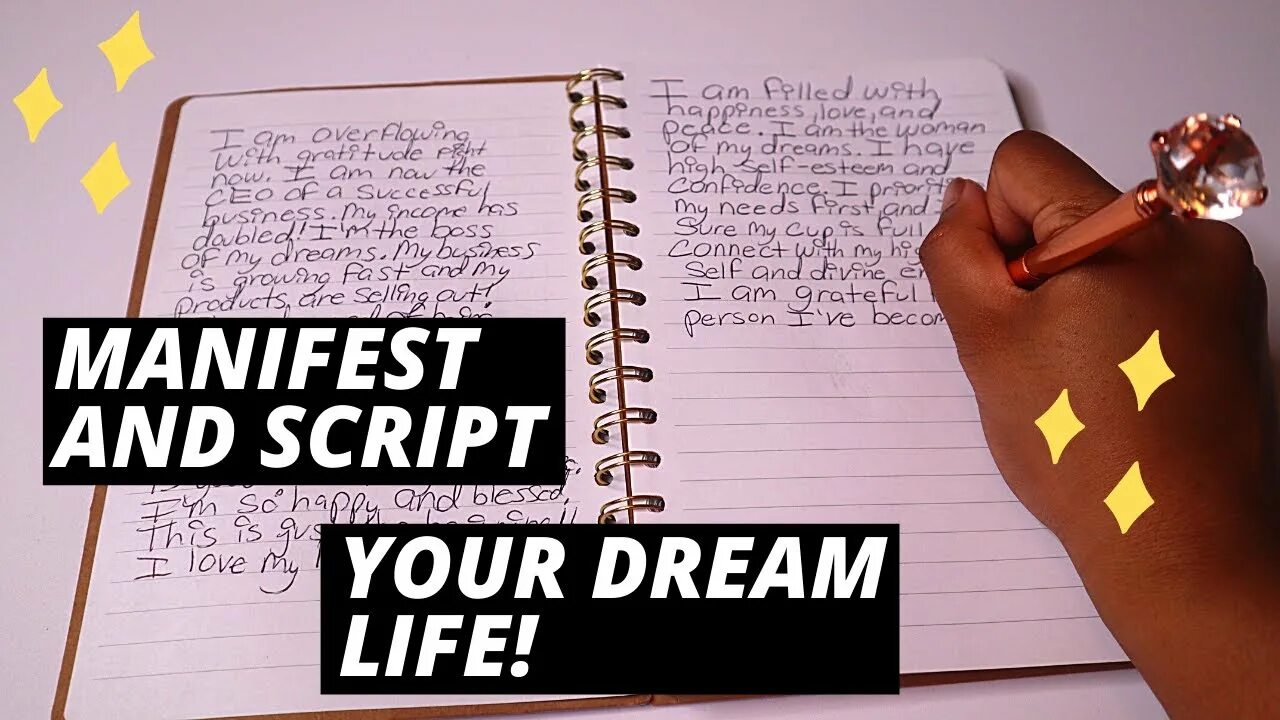 I am overflowing
with gratitude right
now. I am now the
CEO of a successful
business. My income has
doubled! I'm the boss
of my dreams. My business
is growing fast and my
products, are selling out!
I'm so happy and blessed.
This is
I love my
I am filled with
happiness, love, and
peace. I am the woman
of my dreams. I have
high self-esteem and
confidence. I
my needs first and
sure my cup is full
connect with my
self and divine
I am grateful
person I've
MANIFEST
AND SCRIPT
YOUR DREAM
LIFE!